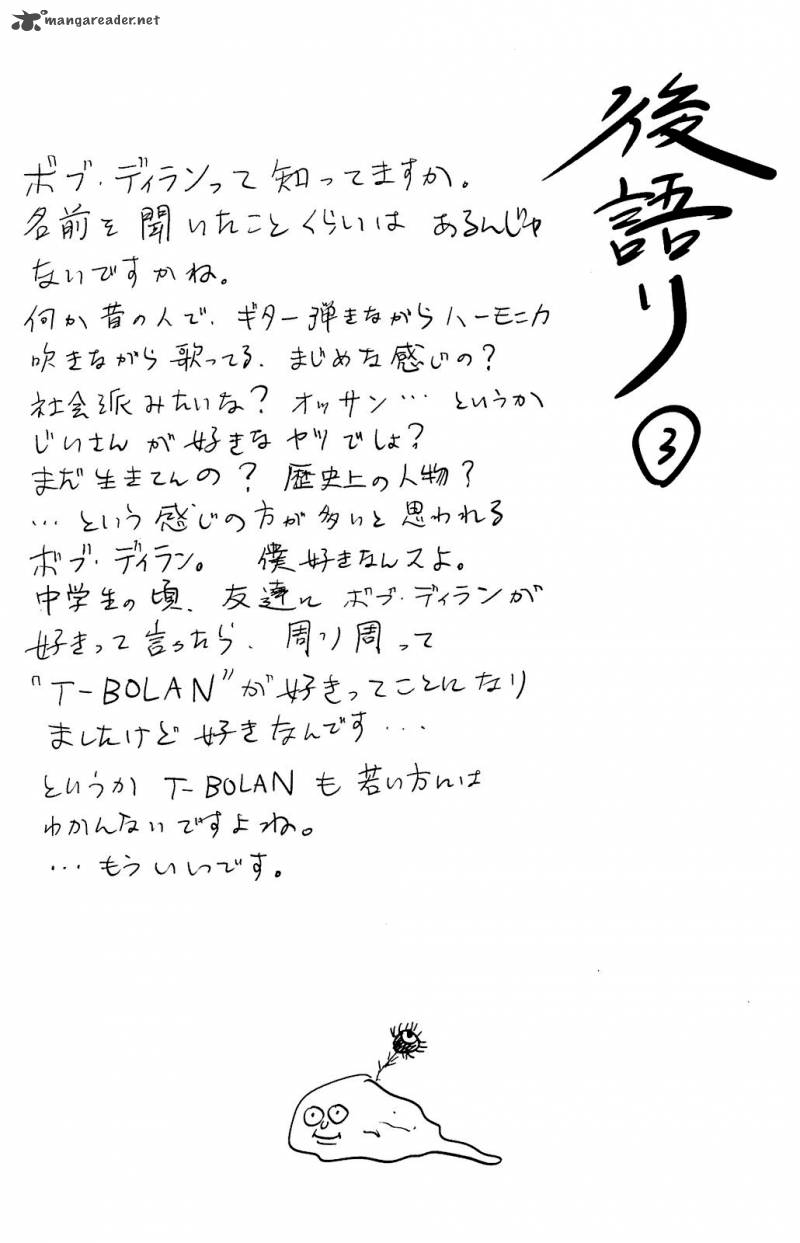 mangareader.net
後語り
3
ボブ・ディランって知ってますか。
名前を聞いたことくらいは あるんじゃ
ないですかね。
何か昔の人で、ギター弾きながらハーモニカ
吹きながら歌ってる、まじめな感じの?
社会派みたいな? オッサン…というか
じいさんが好きなヤツでしょ?
まだ生きてんの? 歴史上の人物?
…という感じの方が多いと思われる
ボブ・ディラン。 僕好きなんスよ。
中学生の頃、友達に ボブ・ディランが
好きって言ったら、周り周って
"T-BOLAN"が好きってことになり
ましたけど好きなんです…
というか T-BOLANも若い方には
わかんないですよね。
…もういいです。